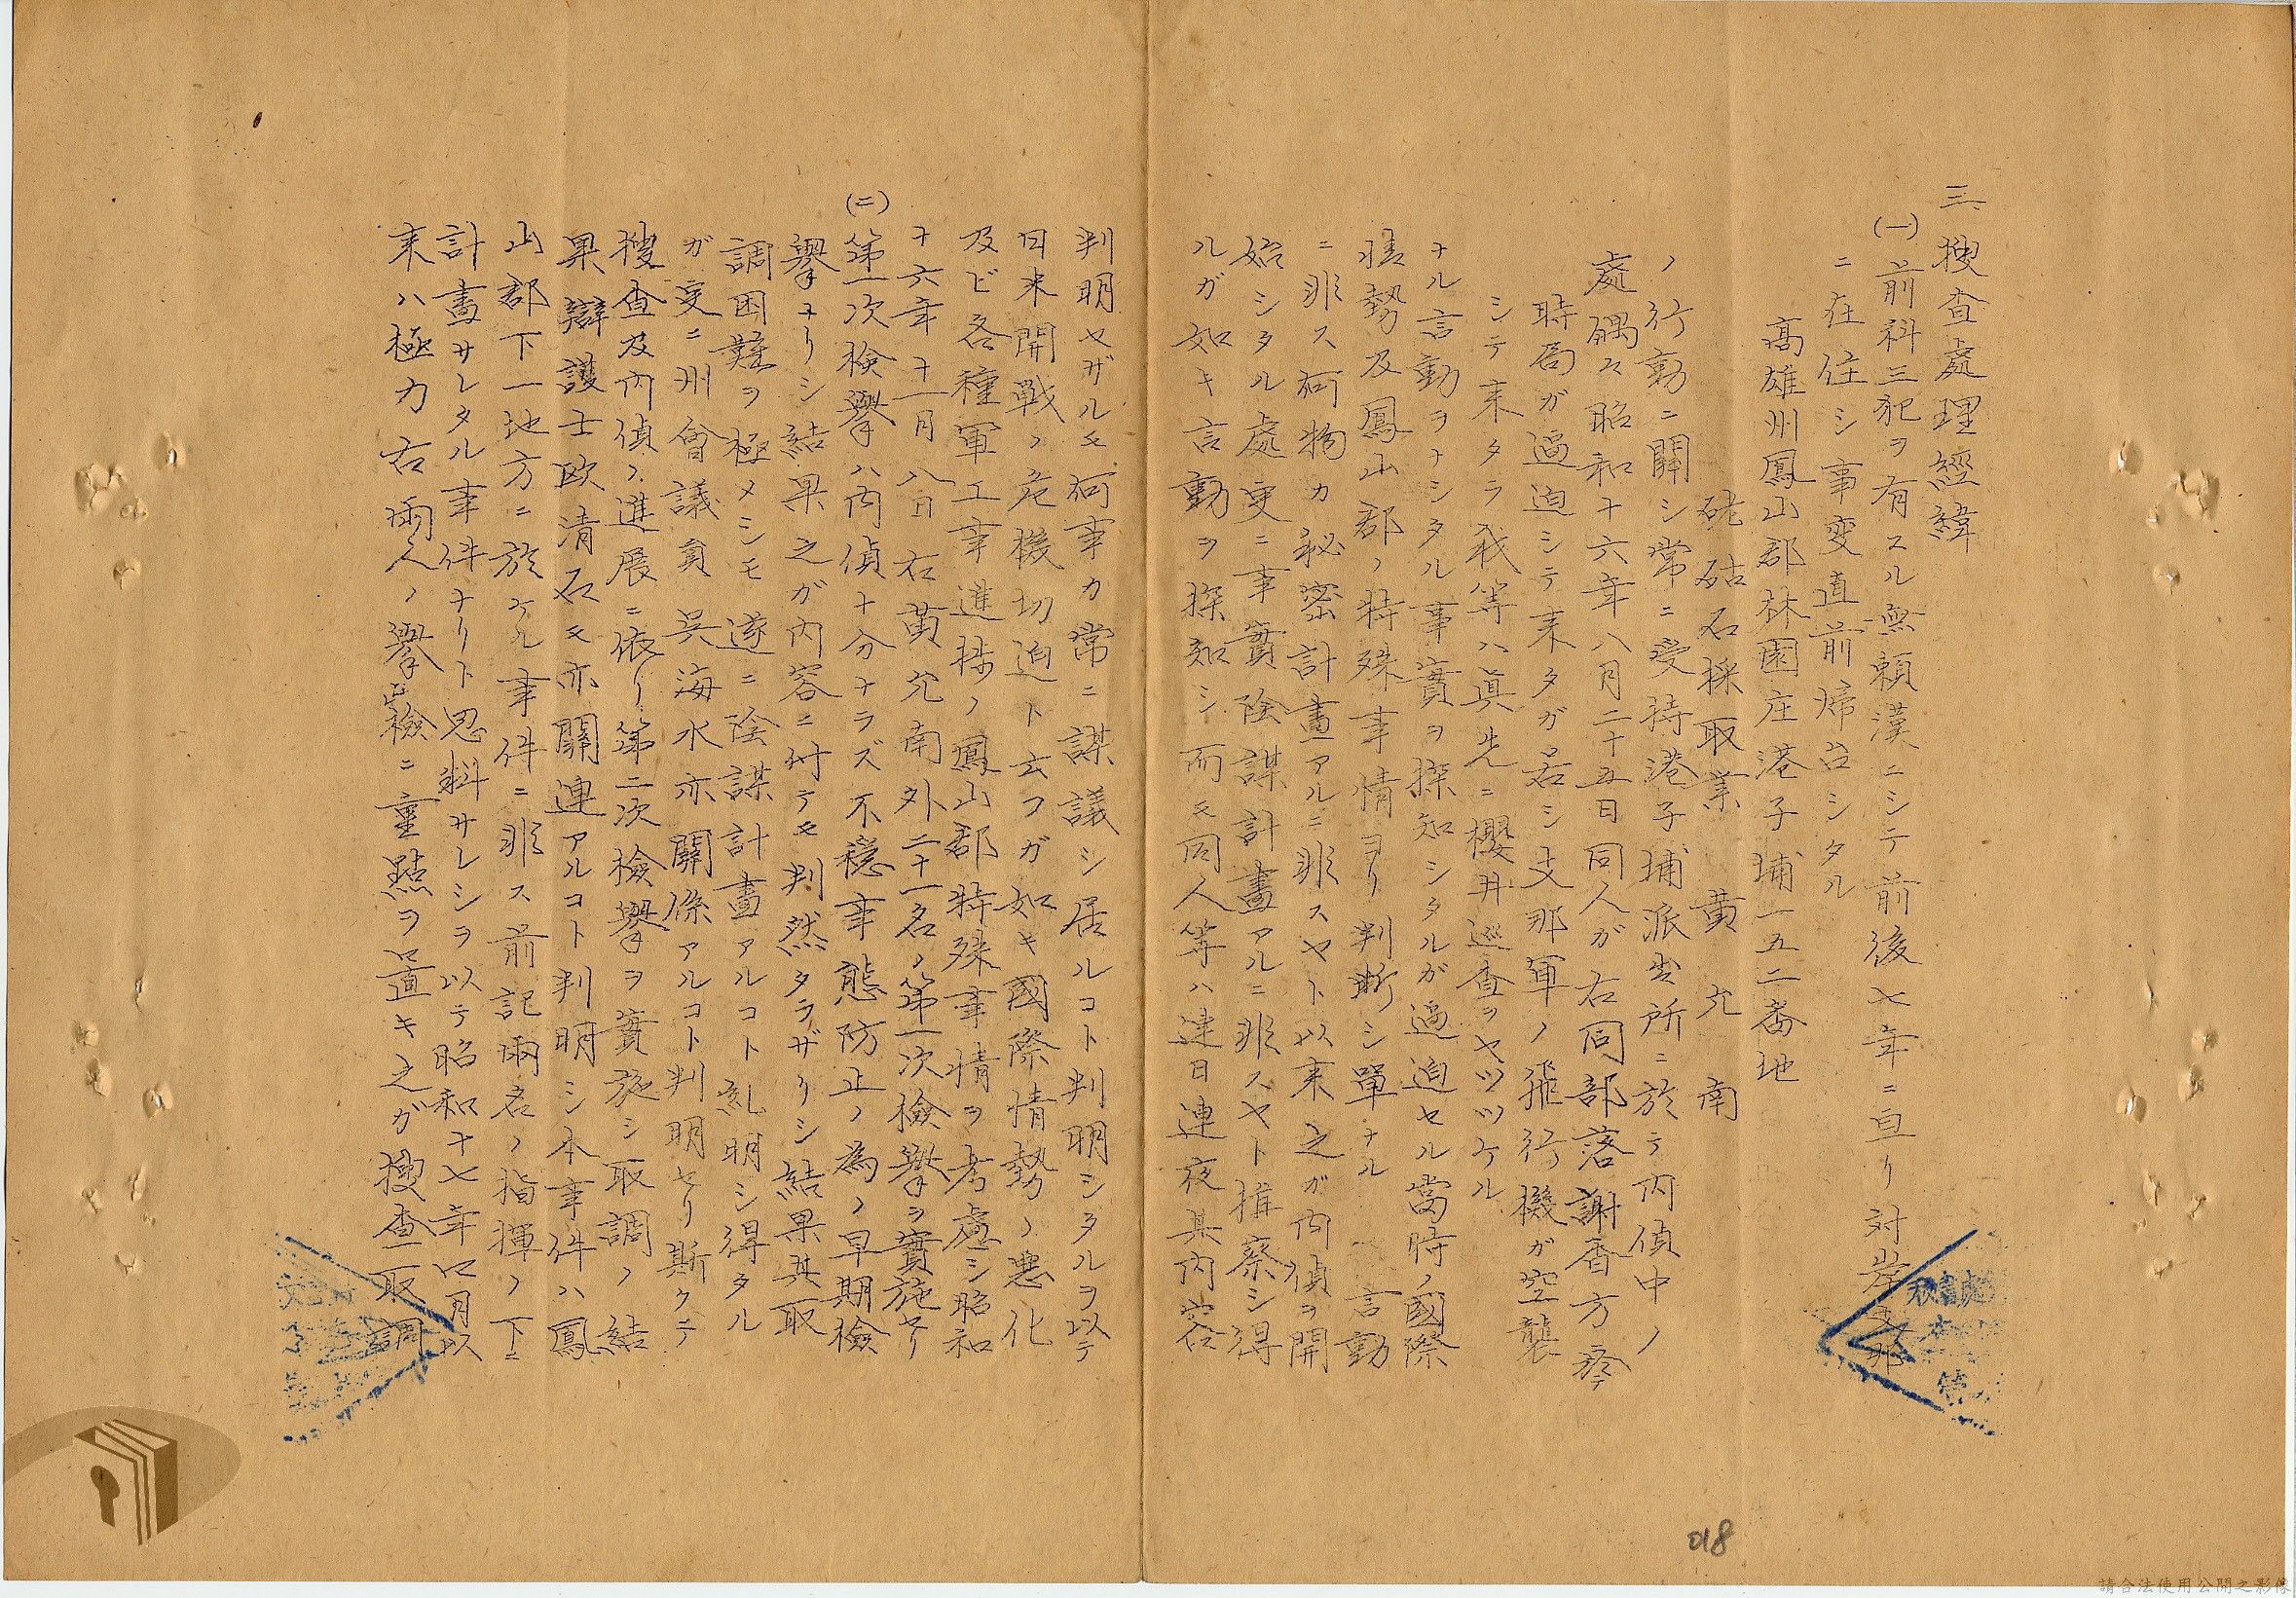 三、捜査處理經緯
(一)前科三犯ヲ有スル無頼漢ニシテ前後七年ニ亘リ対岸支那
ニ在住シ事変直前帰台シタル
高雄州鳳山郡林園庄港子埔一五二番地
硓𥑮石採取業 黄允南
ノ行動ニ關シ常ニ受持港子埔派出所ニ於テ内偵中ノ
處偶々昭和十六年八月二十五日同人ガ右同部落謝香方ニテ
時局ガ逼迫シテ来タガ若シ支那軍ノ飛行機ガ空襲
シテ来タラ我等ハ真先ニ櫻井巡査ヲヤッツケル
ナル言動ヲナシタル事實ヲ探知シタルガ逼迫セル當時ノ國際
情勢及鳳山郡ノ特殊事情ヨリ判断シ單ナル 言動
ニ非ス何物カ秘密計畫アルニ非スヤト以来之ガ内偵ヲ開
始シタル處更ニ事實陰謀計畫アルニ非スヤト推察シ得
ルガ如キ言動ヲ探知シ而モ同人等ハ連日連夜其内容
判明セザルモ何事カ常ニ謀議シ居ルコト判明シタルヲ以テ
日米開戦ノ危機切迫ト云フガ如キ國際情勢ノ悪化
及ビ各種軍工事進捗ノ鳳山郡特殊事情ヲ考慮シ昭和
十六年十一月八日右黄允南外二十一名ノ第一次檢擧ヲ實施セリ
(二)第一次檢擧ハ内偵十分ナラズ不穏事態防止ノ為ノ早期檢
擧ナリシ結果之ガ内容ニ付テモ判然タラザリシ結果其取
調困難ヲ極メシモ遂ニ陰謀計畫アルコト糺明シ得タル
ガ更ニ州會議員呉海水亦關係アルコト判明セリ斯クテ
捜査及内偵ノ進展ニ依リ第二次檢擧ヲ實施シ取調ノ結
果辯護士欧清石モ亦關連アルコト判明シ本事件ハ鳳
山郡下一地方ニ於ケル事件ニ非ス前記兩名ノ指揮ノ下ニ
計畫サレタル事件ナリト思料サレシヲ以テ昭和十七年四月以
来ハ極力右兩人ノ擧證檢ニ重點ヲ置キ之ガ捜査取調
018
請合法使用公開之影像